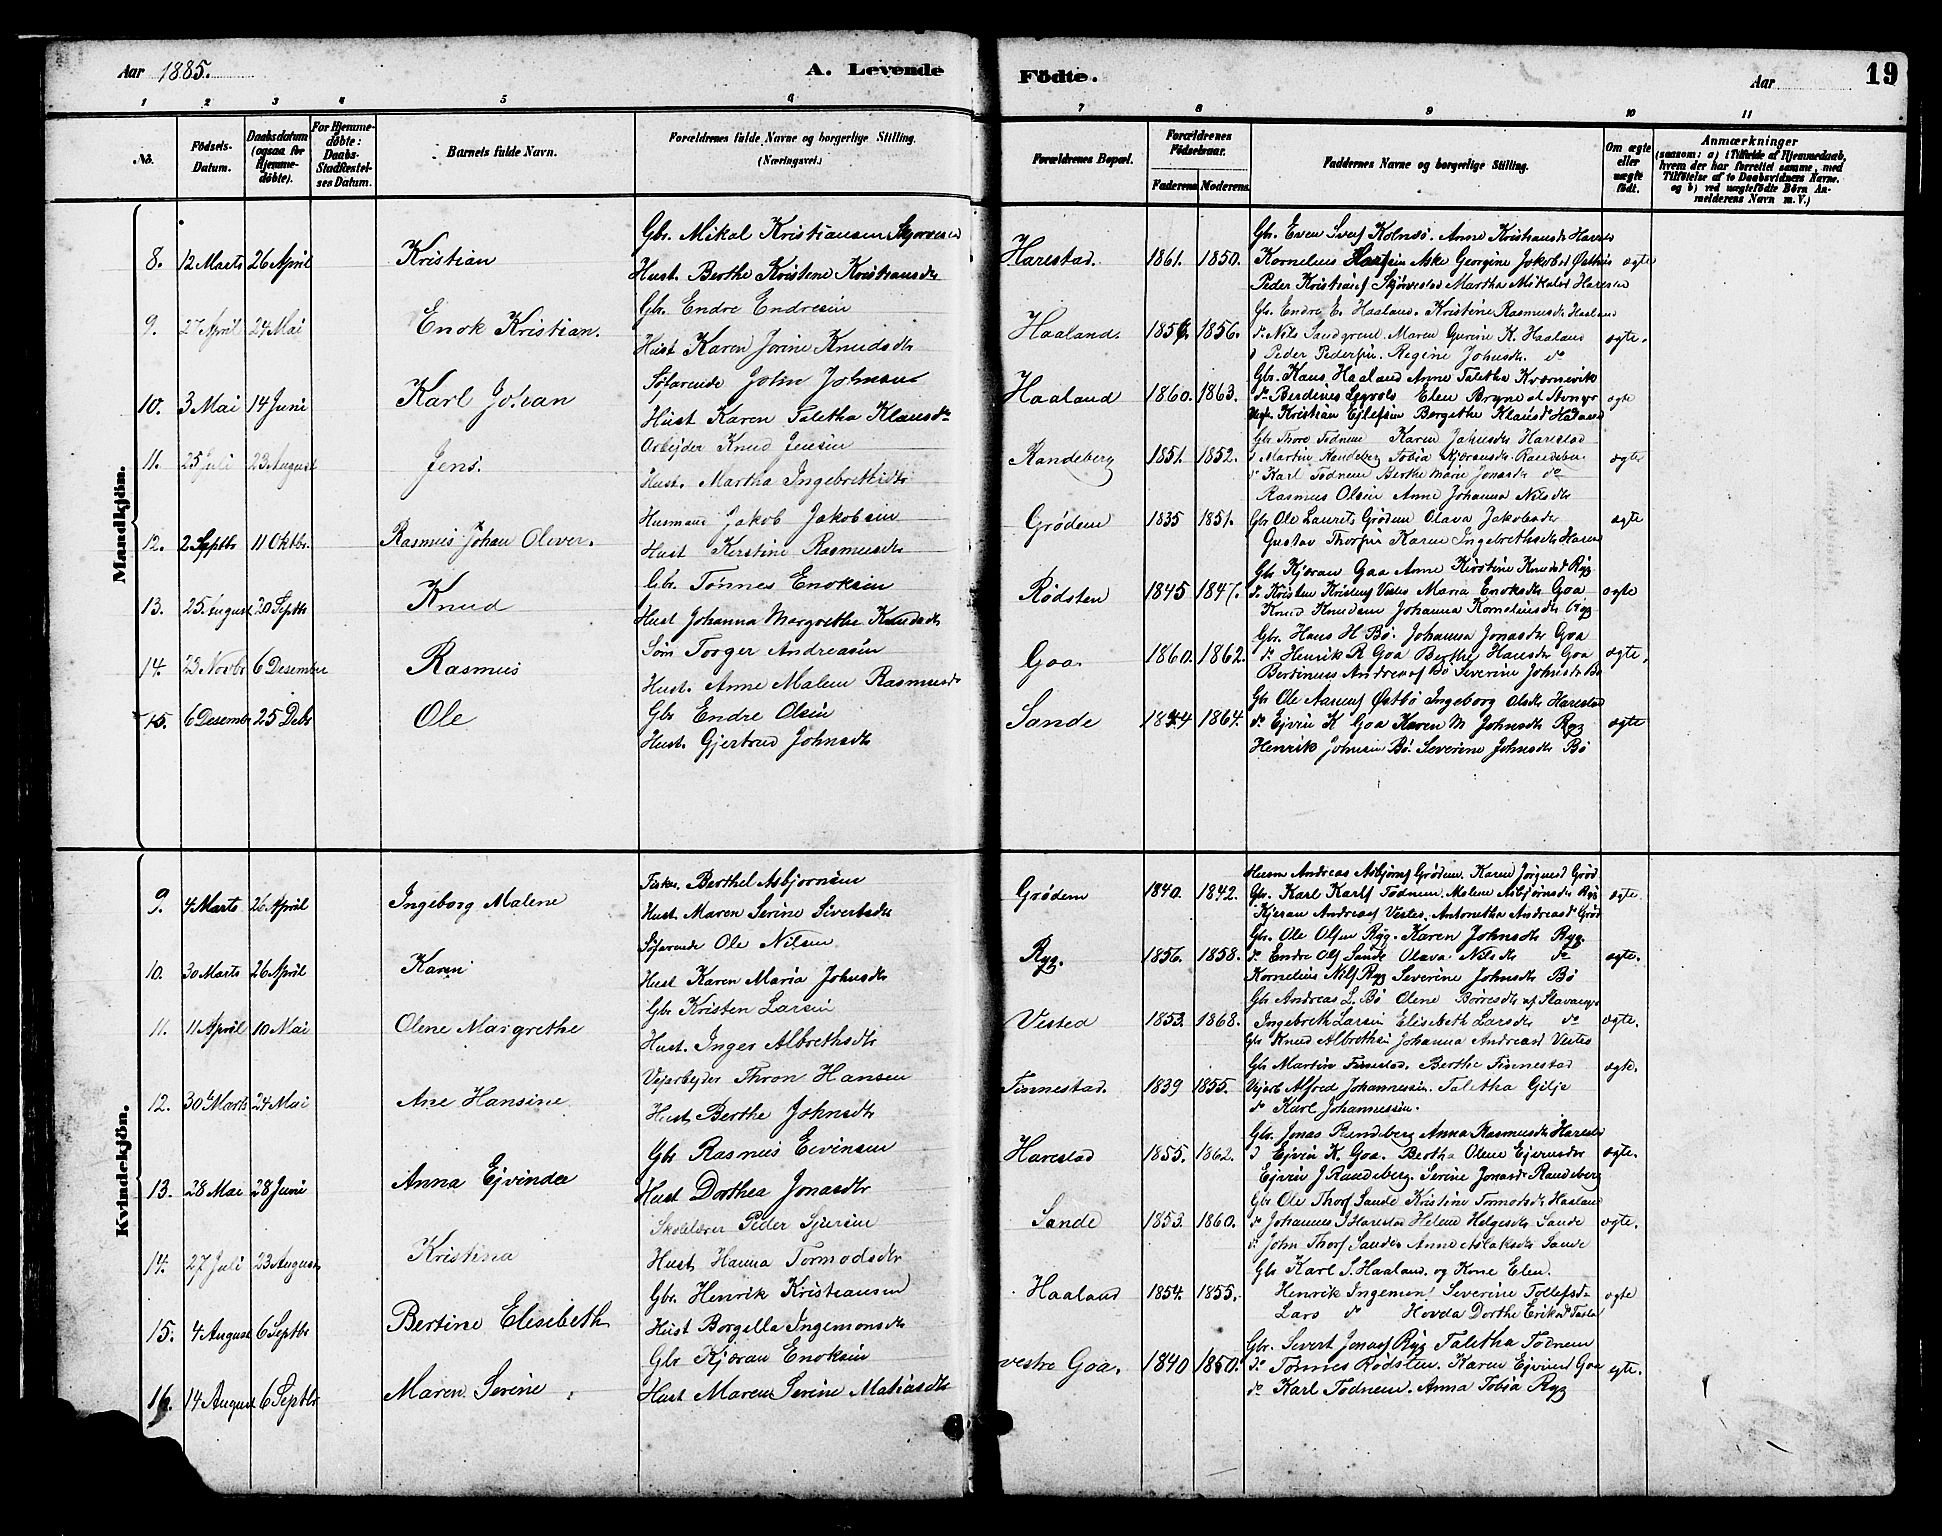 Aar 1885.
A. Levende
Födte.
Aar
19
1 2 3 4 5 6 7 8 9 10 11
No.
Födsels-Datum.
Daabsdatum (ogsaa for Hjemme-döbte).
For Hjemme-döbte: Daabs-Stadfæstel-ses Datum.
Barnets fulde Navn.
Forældrenes fulde Navne og borgerlige Stilling. (Næringsvei.)
Forældrenes Bopæl.
Forældrenes Födselsaar.
Faderens. Moderens.
Faddernes Navne og borgerlige Stilling.
Om ægte eller uægte födt.
Anmærkninger
(saasom: a) i Tilfælde af Hjemmedaab, hvem der har forrettet samme, med Tilföielse af to Daabsvidners Navne, og b) ved uægtefödte Börn An-melderens Navn m. V.)
Mandkjön.
8. 12 Marts 26 April Kristian
Gbr. Mikal Kristiansen
Hust. Berthe Kristene Kristiansdr
Harestad. 1861. 1850.
Gbr. Even Kolnes. Anne Kristiansdr
Kornelius Aske Georgine Jakobsd ægte
Peder Skjørvestad Martha Mikalsd Harestad
9. 27 April 24 Mai Enok Kristian.
Gbr. Endre Endresen
Hust Karen Jorine Knudsdr
Haaland. 1856 1856.
Gbr. Endre E. Haaland. Kristine Rasmusdr Haaland
do Nils Sandgrene Maren Gurine K. Haaland ægte.
d Peder Pedersen. Regine Johnsdr. do
10. 3 Mai 14 Juni Karl Johan
Søfarende John Johnsen
Hust Karen Taletha Klausdr
Haaland 1860. 1863.
Gbr. Haaland Anne Taletha Kværnevik
do Berdines Elen Bryne ægte
Kristian Ejlefsen Bergithe Klausdr Haaland
11. 25 Juli 23 August Jens.
Arbejder Knud Jensen
Hust. Martha Ingebretsdr
Randeberg 1851. 1852.
Gbr Thore Todnem Karen Harestad
d Martin Randeberg Tobia Randeberg ægte
do Karl Todnem Berthe Marie Jonasdr do
12. 2 Septbr 11 Oktbr. Rasmus Johan Oliver.
Husmand Jakob Jakobsen
Hust Kerstine Rasmusdr
Grødem 1835 1851.
Rasmus Olsen Anne Johanna Nilsdr
Gbr Ole Laurits Grødem Olava Jakobsdr ægte
Gustav Karen Ingebrethsdr
13. 25. August 20 Septbr Knud
Gbr. Tønnes Enoksen
Hust Johanna Margrethe Knudsdr
Rødsten 1845 1847.
Gbr Kjøran Goa Anne Kirstine Knudsd Ryg
do Kristen Vestes Maria Enoksdr Goa ægte
Knud Knudsen Johanna Korneliusdr Ryg
14. 23 Novbr 6 Desember Rasmus
Torger Andreasen
Hust. Anne Malene Rasmusdr
Goa. 1860. 1862.
Gbr. Hans H Bø. Johanna Jonasdr Goa
do Henrik R Goa Berthe Hansdr Goa ægte.
Bertinus Bø Severine Johnsdr Bø
15. 6 Desember 25 Debr Ole
Gbr Endre Olsen
Hust. Gjertrud Johnsdr
Sande 1864.
Gbr Ole Østbø Ingeborg Olsdr Harestad
do Ejvin K Goa Karen M Johnsdr Ryg ægte
Henrik Johnsen Bø. Severine Johnsdr Bø
Kvindekjön.
9. 4 Marts 26 April Ingeborg Malene
Fisker Berthel Asbjornsen
Hust Maren Serine Sivertsdr
Grødem 1840. 1842.
Husm Andreas Asbjörnsf Grødem. Karen Grød
Gbr. Karl Karlsf Todnem. Malene Asbjørnsdr Ryg ægte.
Kjøran Andreasf Vestes. Antonetha Andreasdr Grød
10. 30 Marts 26 April Karen
Søfarende Ole Nilsen
Hust Karen Maria Johnsdr
Ryg. 1856. 1858.
Gbr. Ole Olsen Ryg. Karen Johnsdr Ryg.
do Endre Olsf Sande Olava Nilsdr do ægte.
Kornelius Nilsf Ryg Severine Johnsdr Bø
11. 11 April 10 Mai Olene Margrethe
Gbr Kristen Larsen
Hust. Inger Albrethsdr
Vested 1853. 1868.
Gbr Andreas L. Bø Olene Børresdr af Stavanger
Ingebreth Larsen Elisebeth Larsdr do ægte.
Gbr Knud Albrethsen Johanna Andreasd Vestes
12. 30 Marts 24 Mai Ane Hansine
Vejarbejder Thron Hansen
Hust Berthe Johnsdr
Finnestad. 1839 1855.
Gbr Martin Finnestad. Berthe Finnestad ægte.
Vejarb Alfred Johannessen. Taletha Gilje
do Karl Johannessen.
13. 28 Mai 28 Juni Anna Ejvinda
Gbr Rasmus Eivinsen
Hust Dorthea Jonasdtr
Harestad 1855. 1862.
Gbr. Jonas Randeberg Anna Rasmusdr Harestad
d Ejvin K. Goa. Bertha Olene ægte.
Ejvin J Randeberg. Serine Jonasdr Randeberg
14. 27 Juli 23 August Kristina
Skolelærer Peder Sjursen
Hust Hanna Tormodsdtr
Sande 1853. 1860.
Gbr Ole Thorsf Sande Kristine Tormodsdr Haaland
do Johannes J Harestad Helene Helgesdr Sande ægte.
d. John Thorsf Sande Anne Aslaksdr Sande
15. 4 August 6 Septbr Bertine Elisebeth
Gbr. Henrik Kristiansen
Hust Borgella Ingemonsdr
Haaland 1854. 1855.
Gbr Karl S. Haaland. og Kone Elen.
Henrik Ingemonsf Severine Tollefsdr ægte
Lars do Hovda Dorthe Eriksd
16. 14 August 6 Septbr Maren Serine
Gbr Kjøran Enoksen
Hust Maren Serine Matiasdtr
vestre Goa. 1840 1850.
Gbr. Severt Jonasf Ryg Taletha Todnem
do Tønnes Rødsten. Karen Ejvinsd Goa ægte.
do Karl Todnem. Anna Tobia Ryg